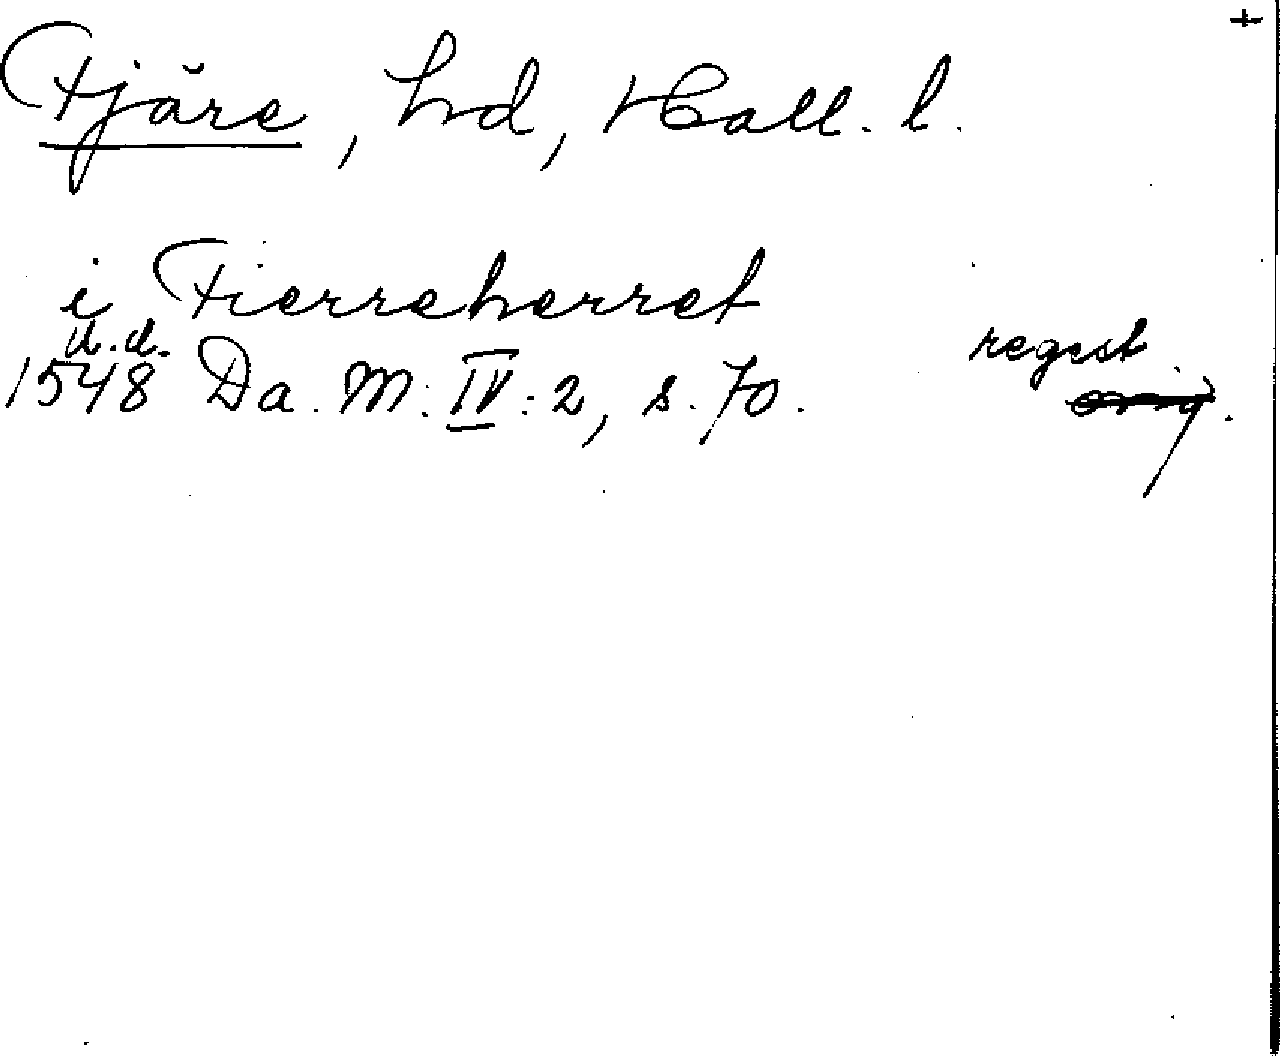 +
Fjäre, hd, Hall. l.
i Fierreherret
d.d.
1548 Da. M: IV: 2, s. 70.
regest
orig.